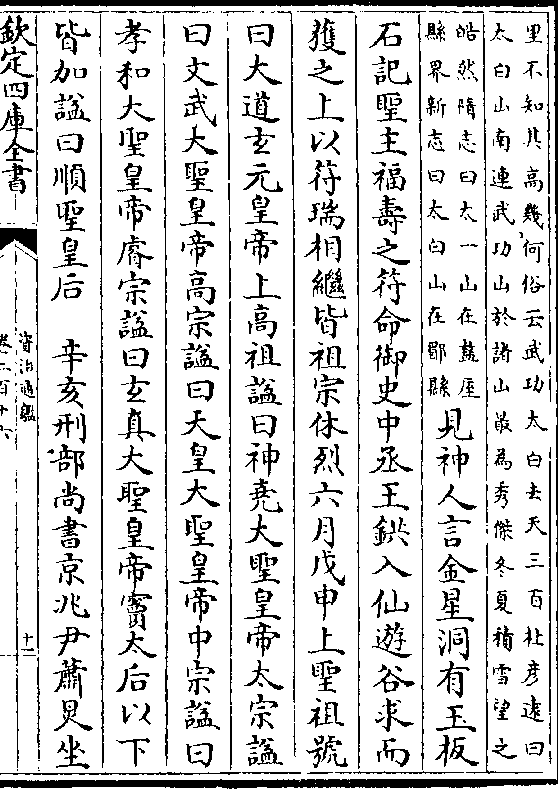 里不知其高幾何俗云武功太白去天三百杜彦遠曰
太白山南連武功山於諸山最為秀傑冬夏積雪望之
皓然隋志曰太一山在盩厔
縣界新志曰太白山在郿縣
見神人言金星洞有玉板
石記聖主福壽之符命御史中丞王鉷入仙遊谷求而
獲之上以符瑞相繼皆祖宗休烈六月戊申上聖祖號
曰大道玄元皇帝上高祖諡曰神堯大聖皇帝太宗諡
曰文武大聖皇帝高宗諡曰天皇大聖皇帝中宗諡曰
孝和大聖皇帝睿宗諡曰玄真大聖皇帝竇太后以下
皆加諡曰順聖皇后 辛亥刑部尚書京兆尹蕭炅坐
欽定四庫全書
資治通鑑
卷二百十六
十一